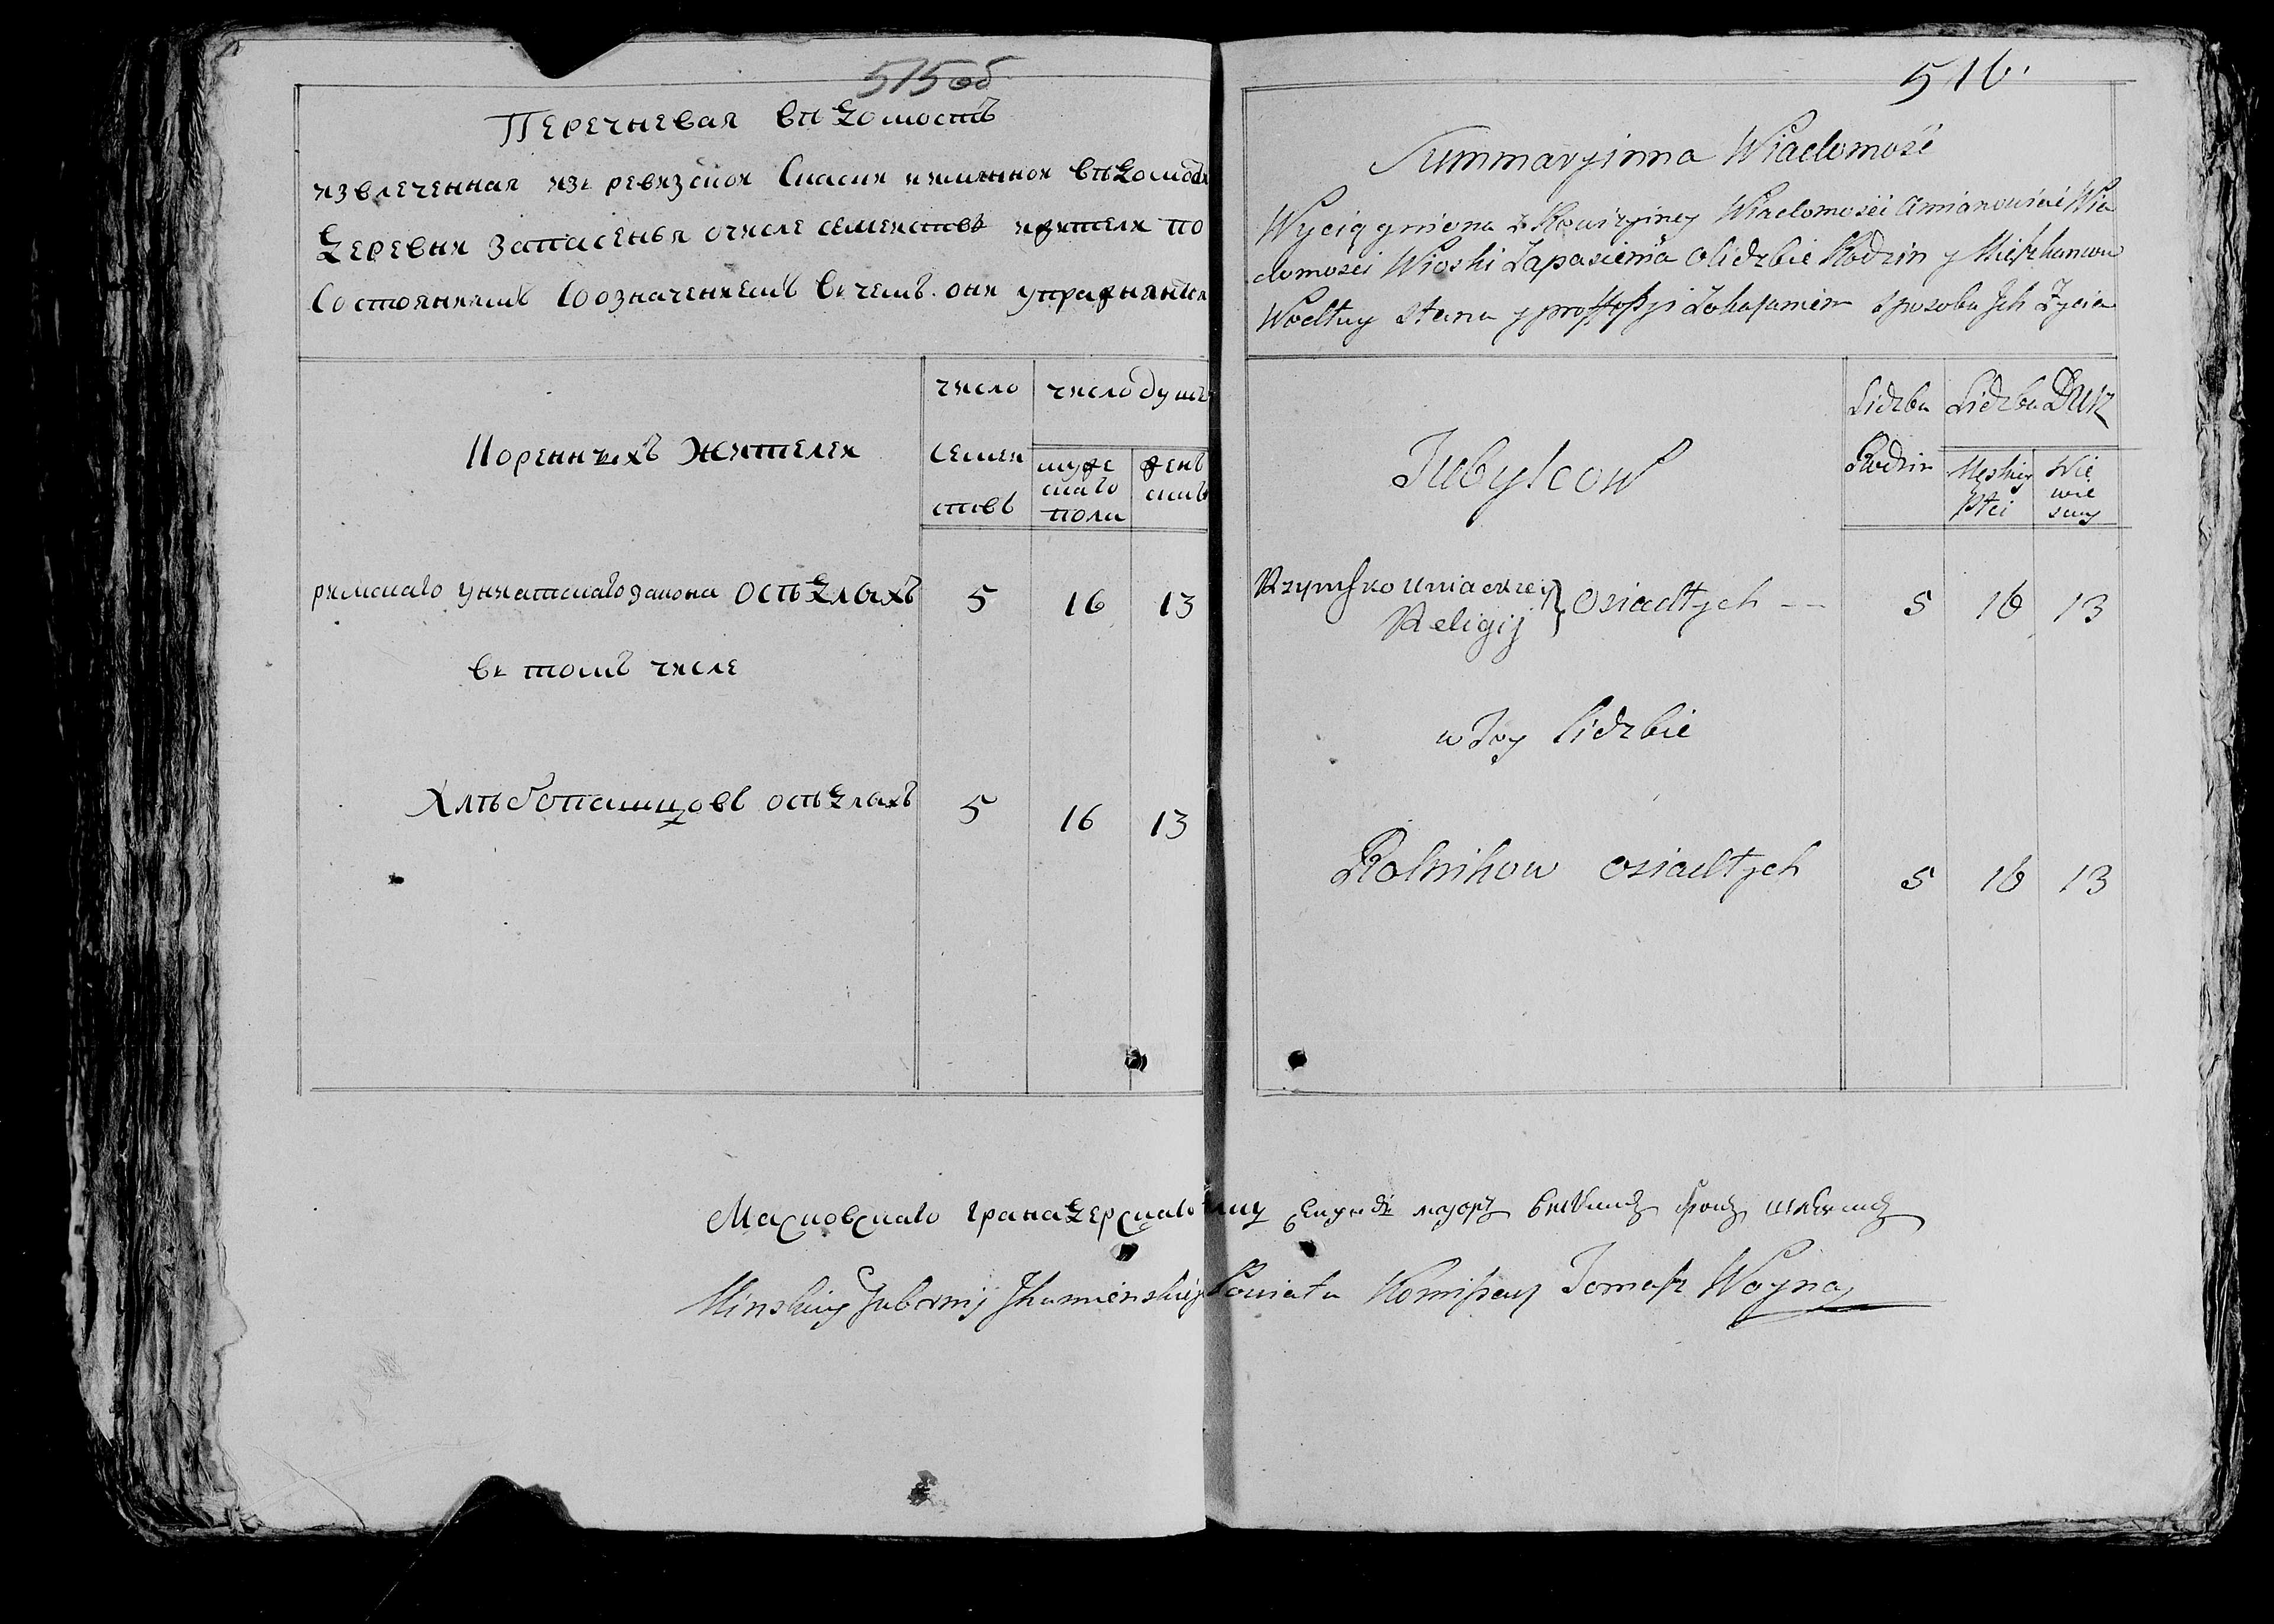 515 об
Перечневая вѣдомость
извлеченная изъ ревизской Сказки имянной вѣдомости
Деревни Запасенья о числе семействъ и жителей по
Состояниямъ Со означениемъ въ чемъ они упражняются
число
число душъ
Коренныхъ жителей
семей
ствъ
муже
скаго
пола
жень
скаго
римскаго униатскаго закона осѣдлыхъ 5 16 13
въ томъ числе
Хлѣбопашцовъ осѣдлыхъ 5 16 13
516.
Summaryinna Wiadomość
Wyciągniona z Rewizyiney Wiadomości a mianowicie Wia
domości Wioski Zapasienia o lidzbie Rodzin y Mieszkancow
Wedłuy stanu y proffessyi z okazaniem sposobu Jch Zycia
Lidzba
Lidzba Dusz
Tubylcow
Rodzin
Męskiey
płci
Nie
wie
sciey
Rzymsko Uniackiey
Religij } Osiadłych -- 5 16 13
w Tey Lidzbie
Rolnikow osiadłych 5 16 13
Московскаго гранадерскаго полку Секундъ маіоръ
Minskiey Gubernij Jhumienskiey Powiatu Komissarz Tomasz Woyna